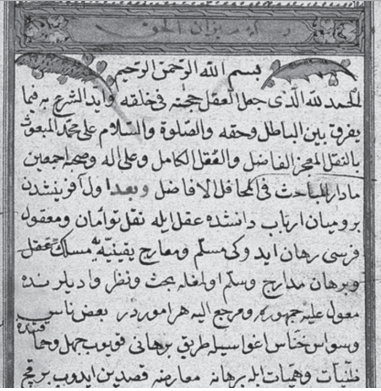 رساله ميزان الحق
بسم الله الرحمن الرحيم
الحمد لله الذى جعل العقل حجته فى خلقه وايد الشرع به فيما
يفرق بين الباطل وحقه والصلوة والسلام على محمد المبعوث
بالنقل المعجز الفاضل والعقل الكامل وعلى اله وصحبه اجمعين
مادار المباحث فى المحافل الافاضل وبعد اول آفرينشدن
برو ميان ارباب دانشده عقل ايله نقل توأمان ومعقول
فرسى رهان ايدوكى مسلم ومعارج يقينيه يه مسلك عقل
وبرهان مدارج وسلم اولمغله بحث ونظر واديلرنده
معول عليه جمهور ومرجع اليه هر امور در بعض ناس
وسواس خناس اغواسيله طريق برهانى قويوب جهل وحماقتنده
ظنيات ووهميات ايله برهانه معارضه قصدين ايدوب برقچ